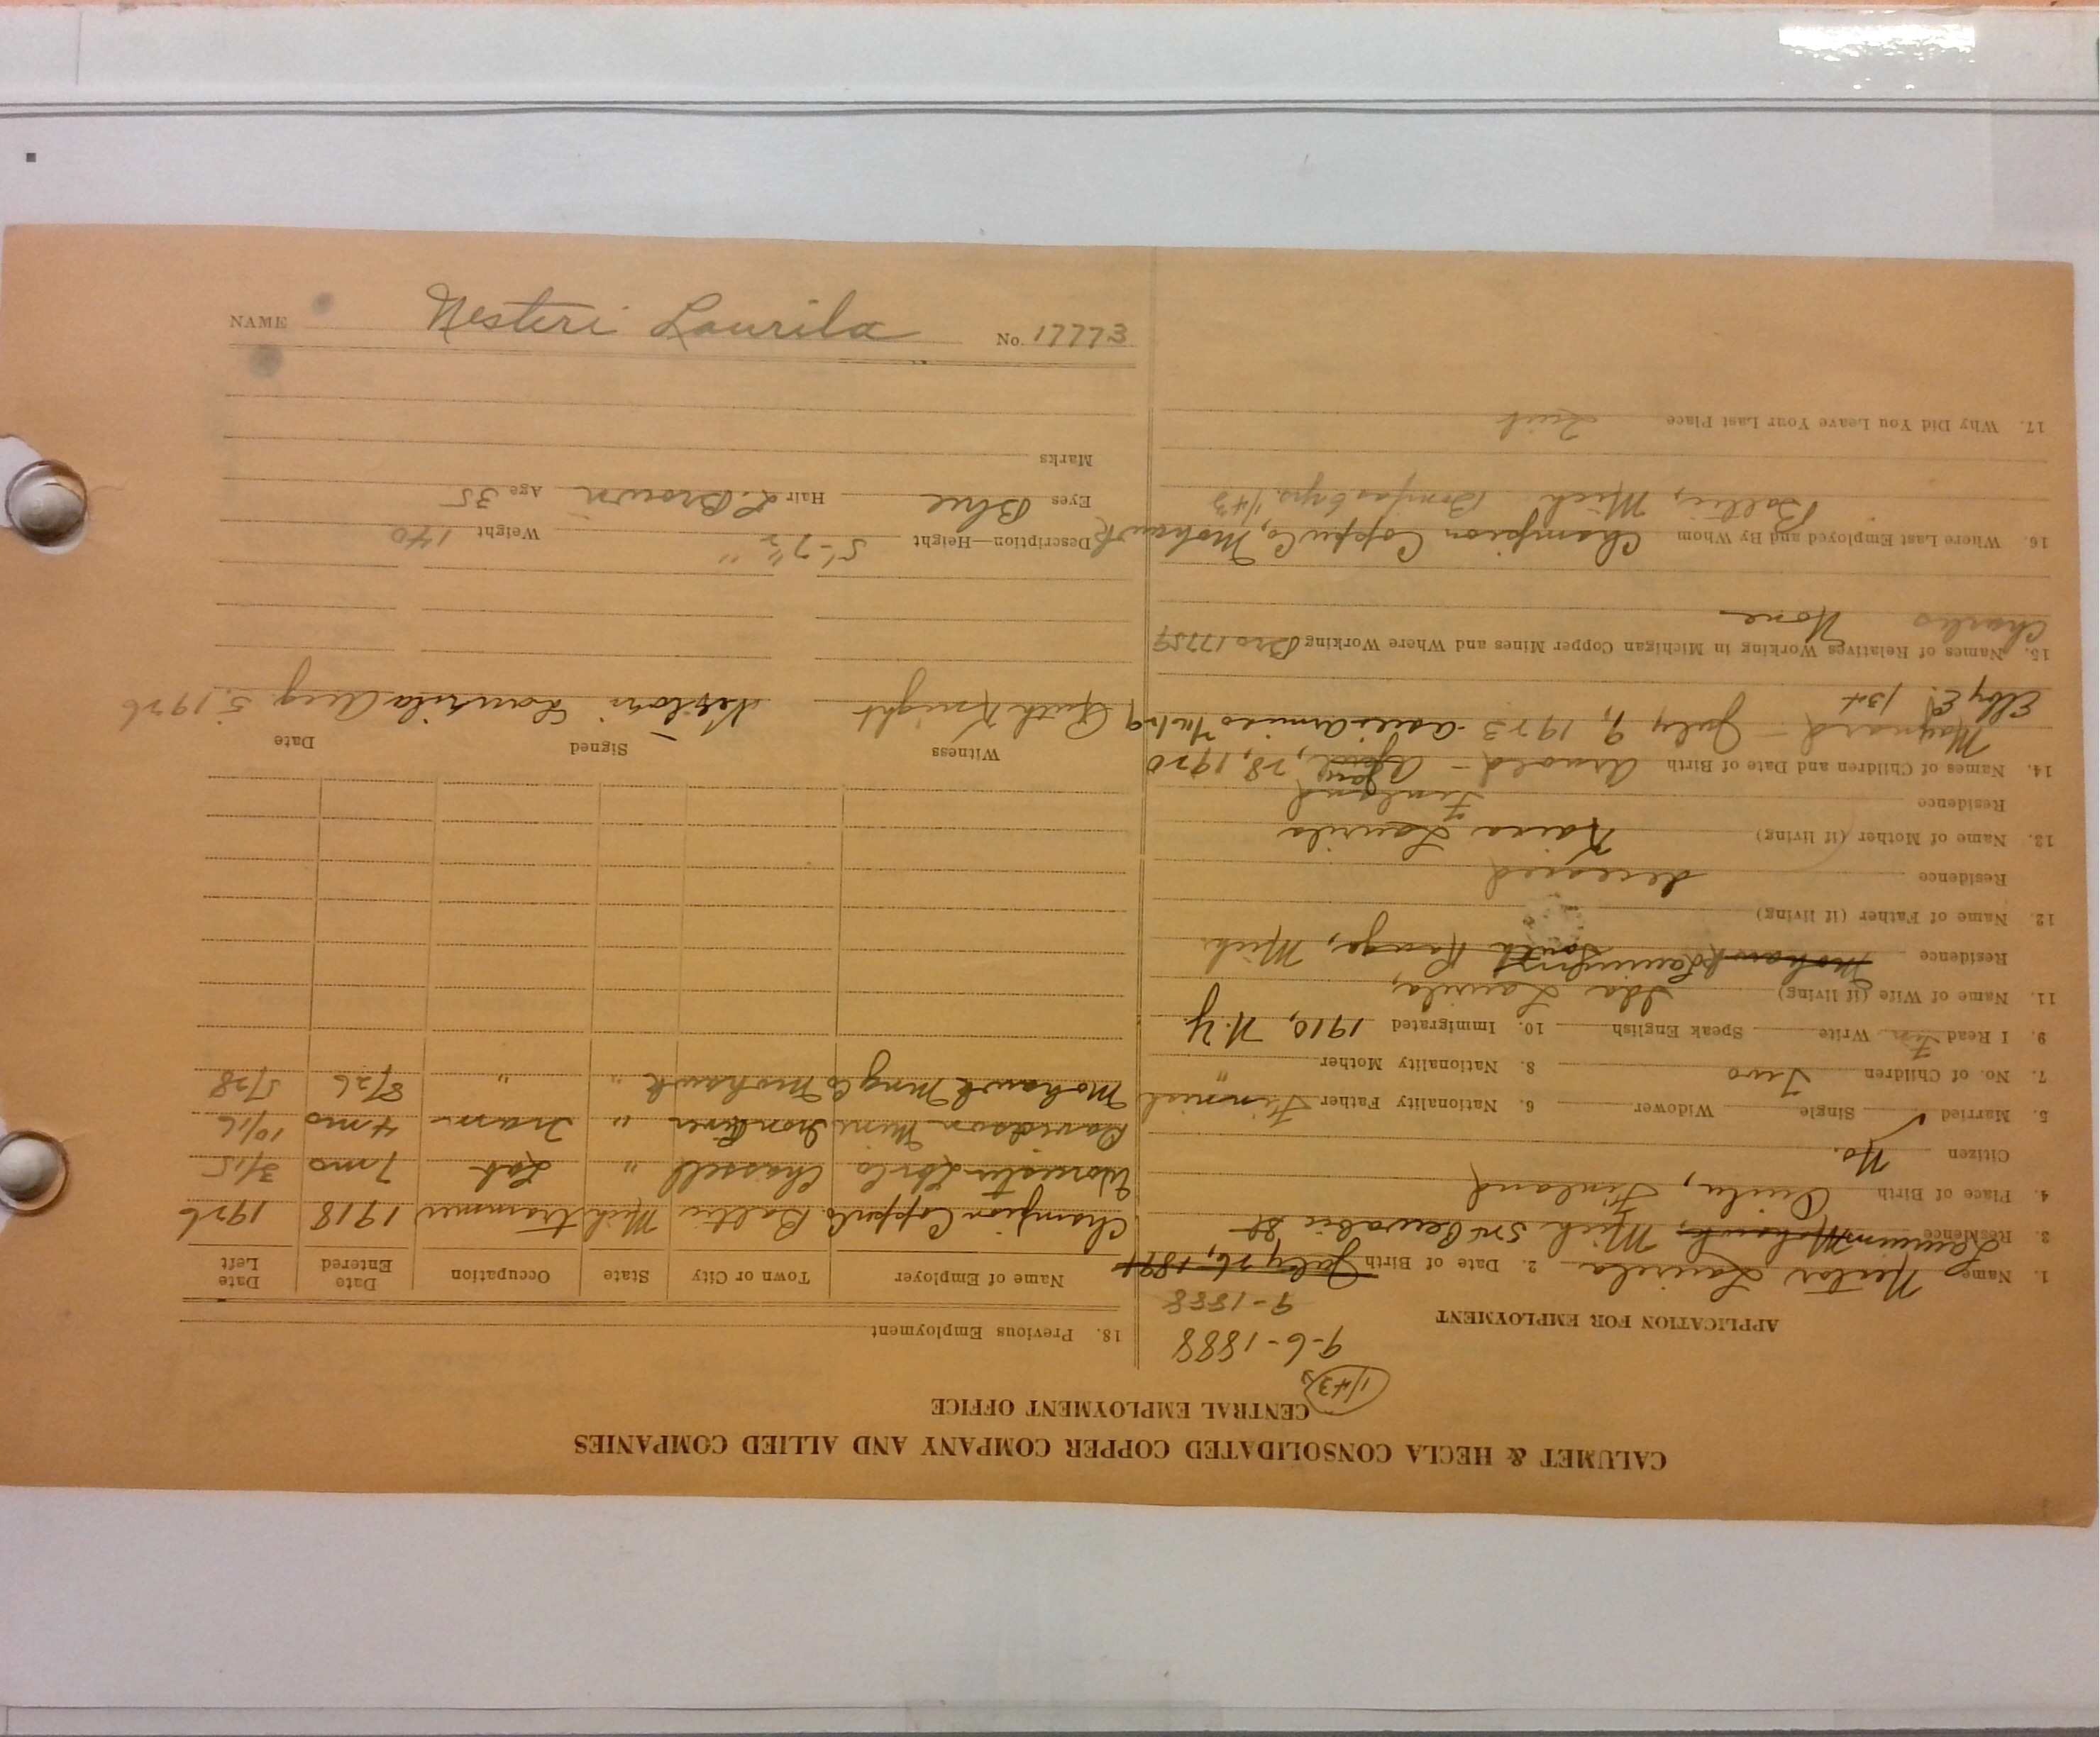 NAME Nesteri Laurila No. 17773
CALUMET & HECLA CONSOLIDATED COPPER COMPANY AND ALLIED COMPANIES
CENTRAL EMPLOYMENT OFFICE
1/43
9-6-1888
9-1888
APPLICATION FOR EMPLOYMENT
1. Name Nestor Laurila 2. Date of Birth July 26, 1891
3. Residence Mohawk, Mich.
4. Place of Birth Finland
Citizen No.
5. Married ✓ Single Widower 6. Nationality Father Finnish
7. No. of Children Two 8. Nationality Mother "
9. I Read Fin Write Speak English 10. Immigrated 1910, N.Y.
11. Name of Wife (if living) Ida Laurila,
Residence Mohawk South Range, Mich.
12. Name of Father (if living)
Residence deceased
13. Name of Mother (if living) Kaisa Laurila
Residence Finland
14. Names of Children and Date of Birth Arnold - April, 28, 1920
Maynard - July 9, 1923
15. Names of Relatives Working in Michigan Copper Mines and Where Working Bro 17759
Charles None
16. Where Last Employed and By Whom Champion Copper Co, Mohawk
Baltic, Mich
17. Why Did You Leave Your Last Place Quit
18. Previous Employment
Name of Employer Town or City State Occupation Date Entered Date Left
Champion Copper Co. Baltic Mich trammer 1918 1926
Worcester Lbr Co Chassell " Lab 7 mo 3/15
Davidson Mine Iron River " Tram 4 mo 10/16
Mohawk Mng Co Mohawk " " 8/26 5/28
Witness Signed Date
Ruth Knight Nestori Laurila Aug. 5, 1926
Description—Height 5'-7½" Weight 140
Eyes Blue Hair L. Brown Age 35
Marks